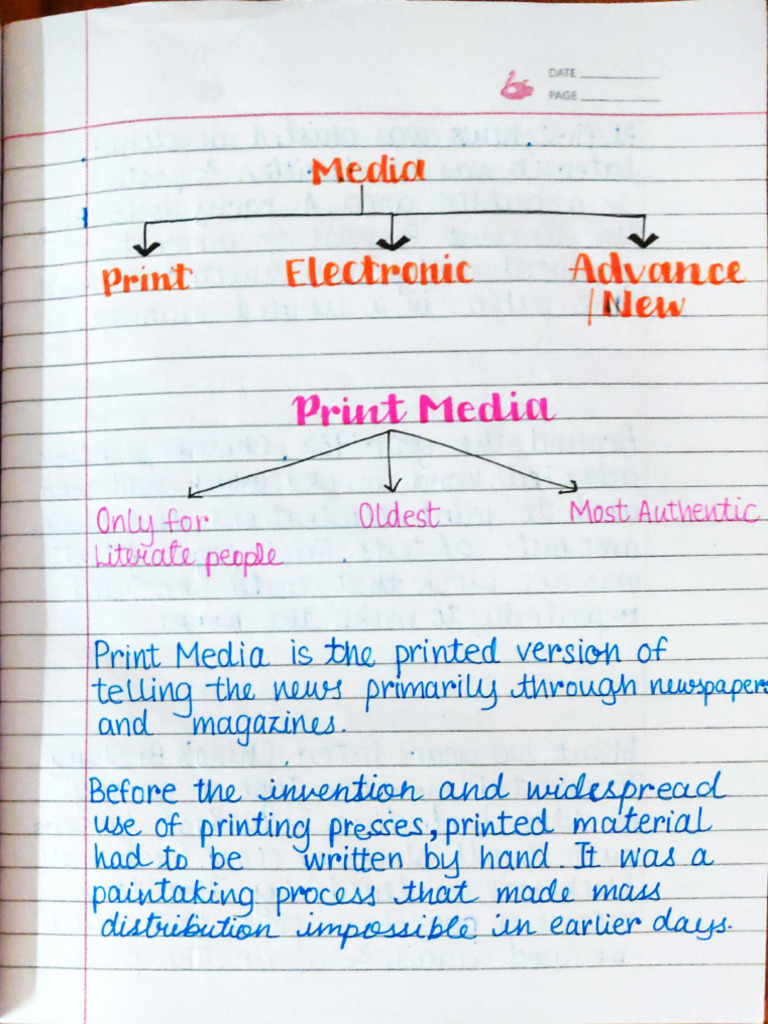 DATE
PAGE
Media
Print Electronic Advance
/New
Print Media
Only for Oldest Most Authentic
Literate people
Print Media is the printed version of
telling the news primarily through newspapers
and magazines.
Before the invention and widespread
use of printing presses, printed material
had to be written by hand It was a
paintaking process that made mass
distribution impossible in earlier days.